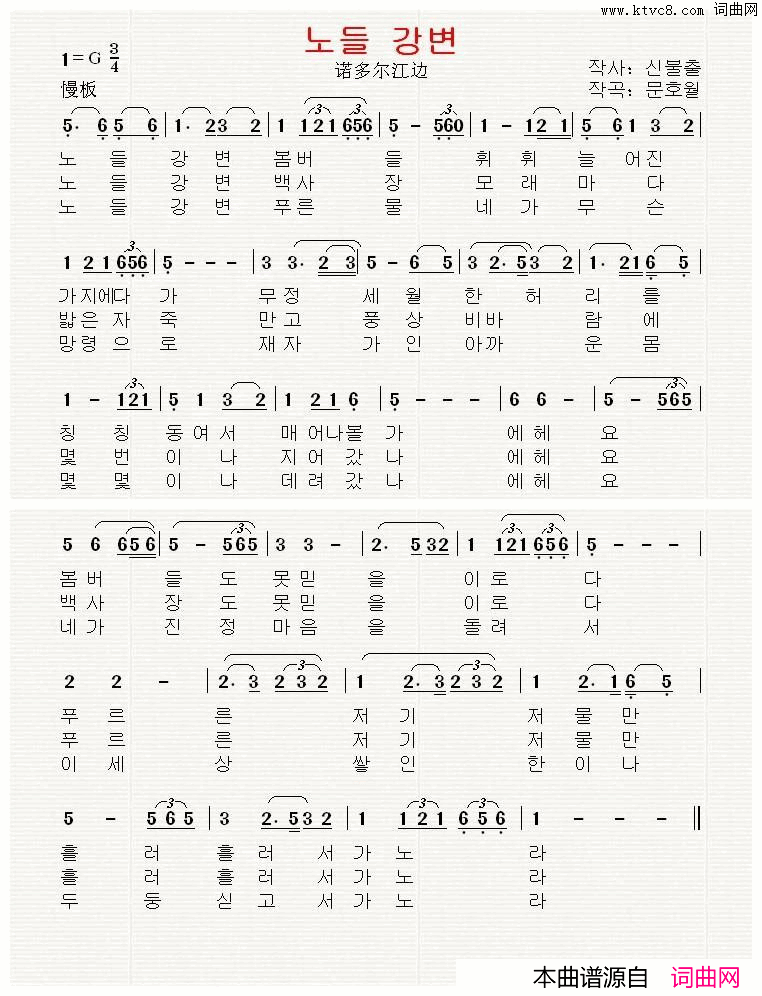 www.ktvc8.com 词曲网
노들 강변
1=G 3/4
诺多尔江边
작사: 신불출
慢板
작곡: 문호월
5· 6 5 6 | 1· 2 3 2 | 1 1 2 1 6 5 6 | 5 - 5 6 0 | 1 - 1 2 1 | 5 6 1 3 2 |
노 들 강 변 봄버 들 휘휘 늘 어진
노 들 강 변 백사 장 모래 마 다
노 들 강 변 푸른 물 네가 무 슨
1 2 1 6 5 6 | 5 - - - | 3 3· 2 3 | 5 - 6 5 | 3 2· 5 3 2 | 1· 2 1 6 5 |
가지에다 가 무정 세월 한 허 리 를
밟은 자 죽 만고 풍상 비바 람 에
망령 으 로 재자 가인 아까 운 몸
1 - 1 2 1 | 5 1 3 2 | 1 2 1 6 | 5 - - - | 6 6 - | 5 - 5 6 5 |
칭 칭 동여서 매어나볼 가 에헤 요
몇 번 이 나 지어 갔나 에헤 요
몇 몇 이 나 데려 갔나 에헤 요
5 6 6 5 6 | 5 - 5 6 5 | 3 3 - | 2· 5 3 2 | 1 1 2 1 6 5 6 | 5 - - - |
봄버 들 도 못믿 을 이로 다
백사 장 도 못믿 을 이로 다
네가 진 정 마음 을 돌려 서
2 2 - | 2· 3 2 3 2 | 1 2· 3 2 3 2 | 1 2· 1 6 5 |
푸르 른 저기 저 물만
푸르 른 저기 저 물만
이세 상 쌓인 한 이나
5 - 5 6 5 | 3 2· 5 3 2 | 1 1 2 1 6 5 6 | 1 - - - ‖
흘 러 흘 러 서 가노 라
흘 러 흘 러 서 가노 라
두 둥 싣 고 서 가노 라
本曲谱源自 词曲网